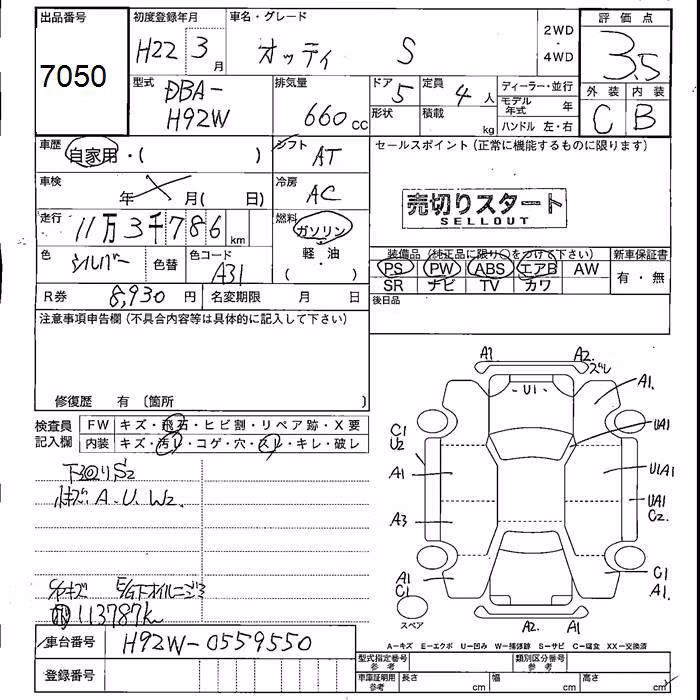 出品番号 初度登録年月 車名・グレード 2WD・4WD 評価点
7050 H22 3月 オッティ S 3.5
型式 DBA-H92W 排気量 660cc ドア 5 定員 4人 形状 積載 kg
ディーラー・並行 モデル年式 年 ハンドル 左・右
外装 内装
C B
車歴 自家用・( ) シフト AT
セールスポイント(正常に機能するものに限ります)
車検 年 月( 日) 冷房 AC
売切りスタート
SELLOUT
走行 11万3千786km 燃料 ガソリン・軽油 ( )
色 シルバー 色替 色コード A31
装備品(純正品に限り○をつけて下さい) 新車保証書
PS PW ABS エアB AW 有・無
SR ナビ TV カワ
R券 8,930円 名変期限 月 日
後日品
注意事項申告欄(不具合内容等は具体的に記入して下さい)
修復歴 有 〔箇所 〕
検査員記入欄 FW キズ・飛石・ヒビ割・リペア跡・X要
内装 キズ・汚レ・コゲ・穴・スレ・キレ・破レ
下回りS2
A.U.W2.
E/G下オイルニジミ
113787k
車台番号 H92W-0559550
登録番号
A1 A2. ズレ
U1
A1.
UA1
C1
U2
A1
U1A1
UA1
C2.
A3
A1
C1
C1
A1.
スペア
A2. A1
A-キズ E-エクボ U-凹み W-補修跡 S-サビ C-腐食 XX-交換済
型式指定番号 参考 類別区分番号 参考
車庫証明用 参考 長さ cm 幅 cm 高さ cm